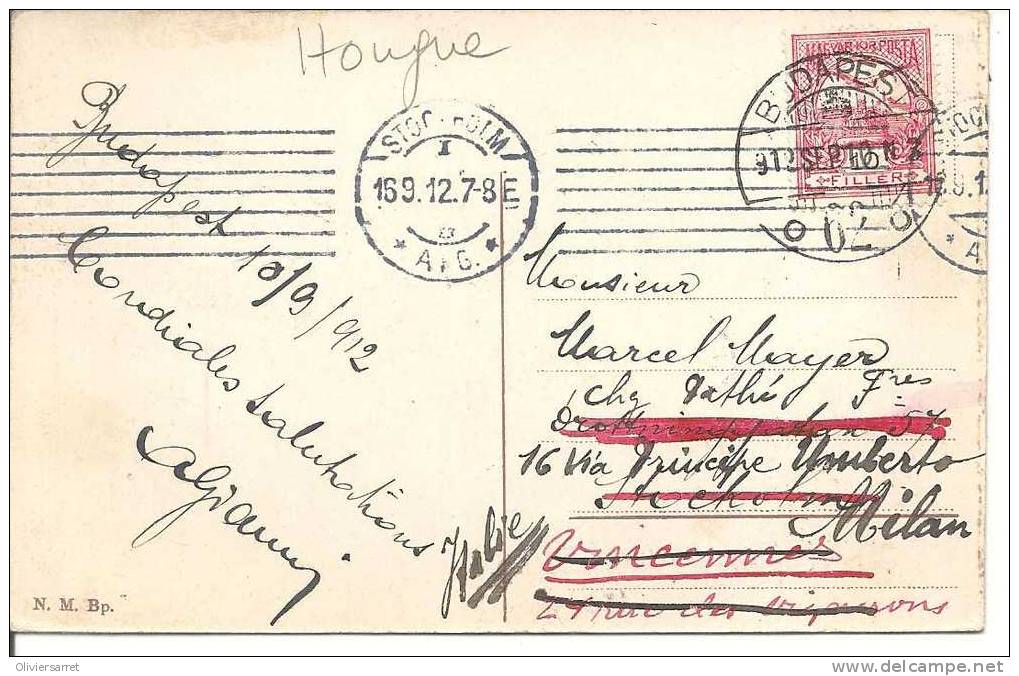 Hongrie
MAGYAR KIR POSTA
BUDAPEST
912 SEP 10
FILLER
62
STOCKHOLM
I
16 9. 12. 7-8 E
* A F G. *
Budapest
10/9/912
Cordiales salutations
Monsieur
Marcel Mayer
chz Pathé Fres
Drottninggatan 57
16 Via Principe Umberto
Stockholm
Milan
Italie
Vincennes
rue des
N. M. Bp.
Oliviersarret
delcampe.net